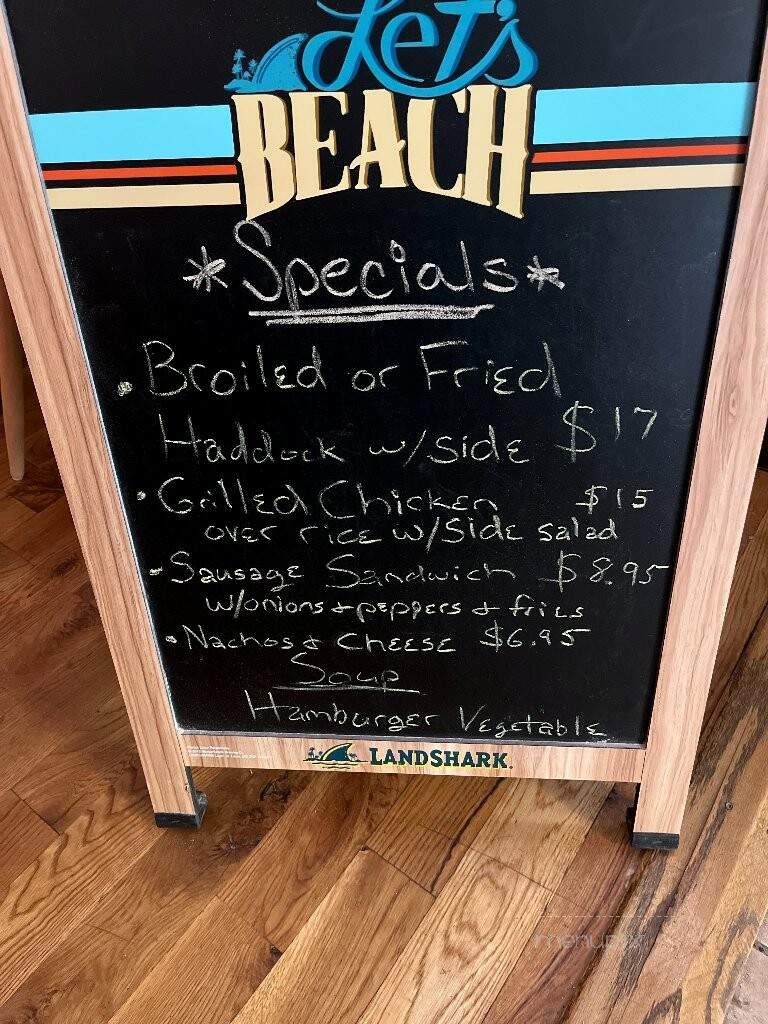 Let's
BEACH
*Specials*
• Broiled or Fried
Haddock w/side $17
• Grilled Chicken $15
over rice w/Side salad
• Sausage Sandwich $8.95
w/onions + peppers + fries
• Nachos + Cheese $6.95
Soup
Hamburger Vegetable
LANDSHARK.